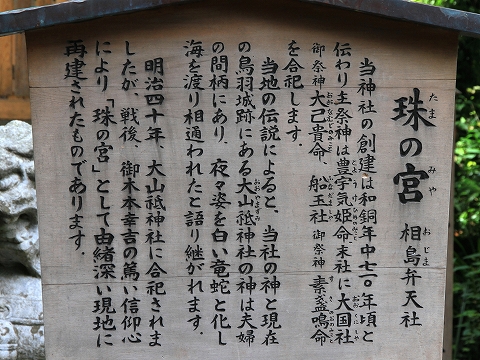 珠の宮 相島弁天社
たま みや おじま
当神社の創建は和銅年中七一〇年頃と
伝わり主祭神は豊宇気姫命末社に大国社
御祭神 大己貴命、船玉社 御祭神 素盞鳴命
を合祀します。
当地の伝説によると、当社の神と現在
の鳥羽城跡にある大山祗神社の神は夫婦
の間柄にあり、夜々姿を白い竜蛇と化し
海を渡り相通われたと語り継がれます。
明治四十年、大山祗神社に合祀されま
したが、戦後、御木本幸吉の篤い信仰心
により「珠の宮」として由緒深い現地に
再建されたものであります。